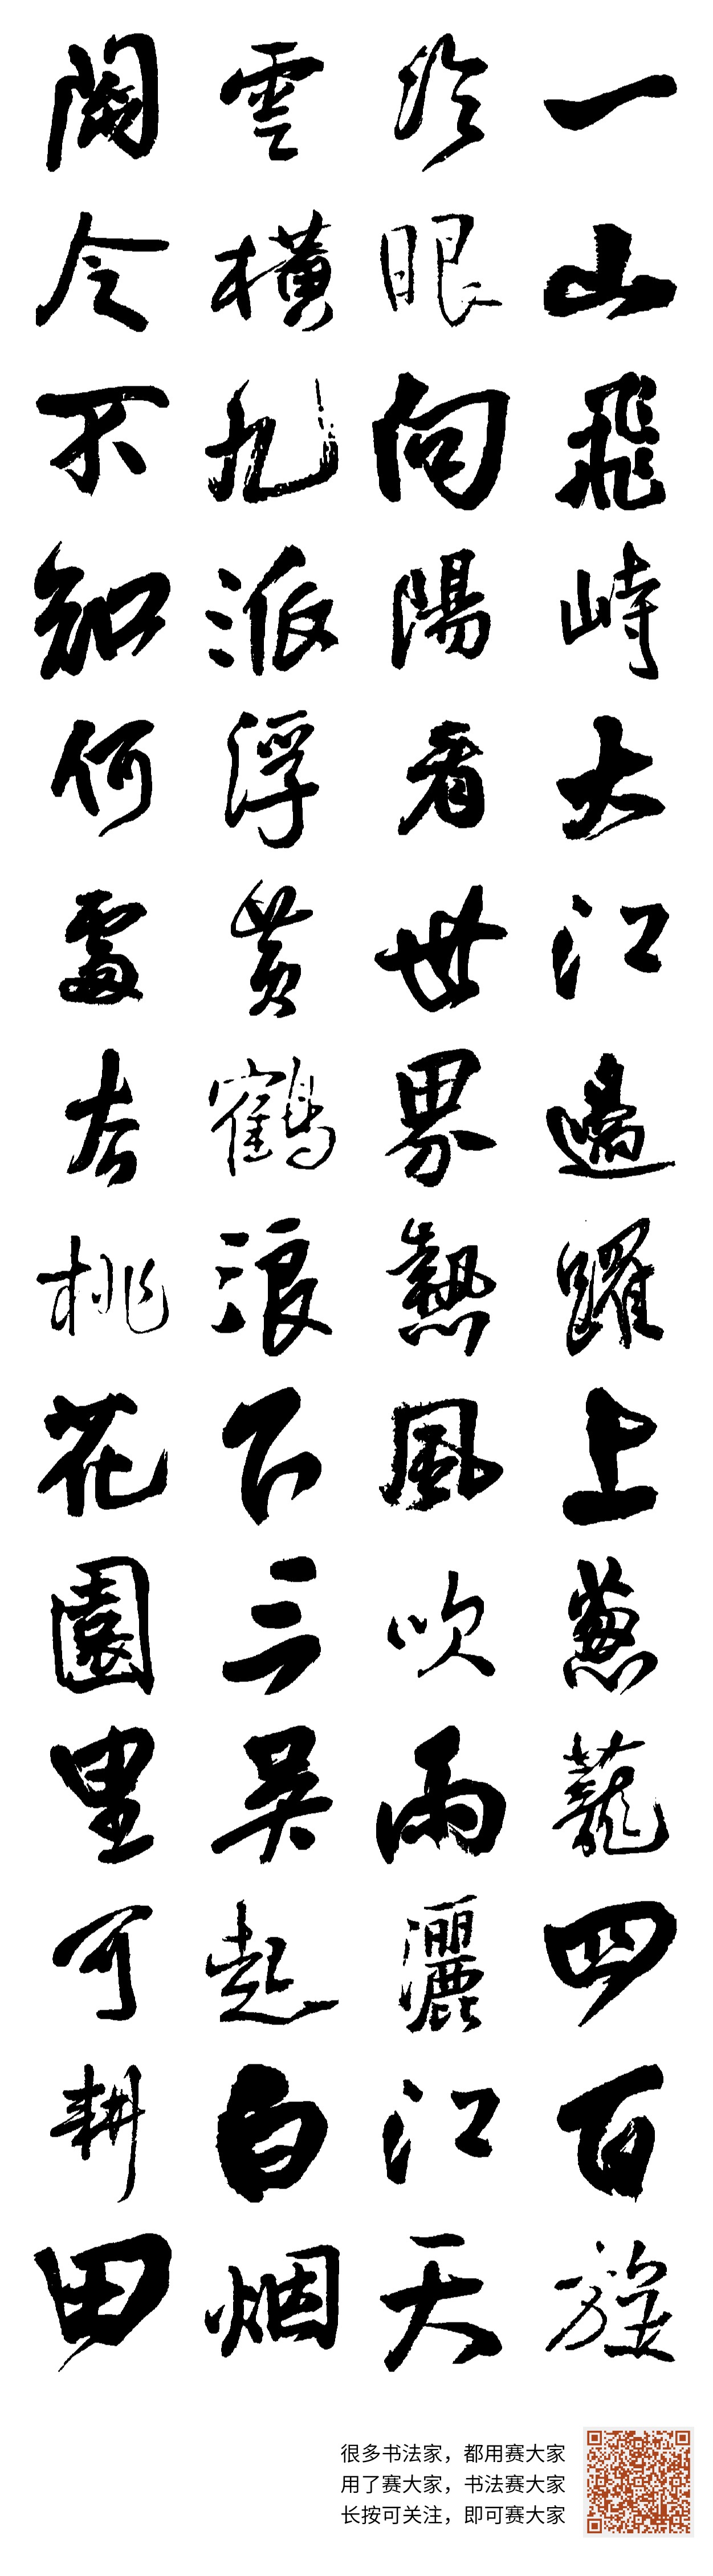 一山飛峙大江邊躍上葱蘢四百旋
冷眼向陽看世界熱風吹雨灑江天
雲橫九派浮黃鶴浪下三吳起白烟
陶令不知何處去桃花園里可耕田
很多书法家，都用赛大家
用了赛大家，书法赛大家
长按可关注，即可赛大家